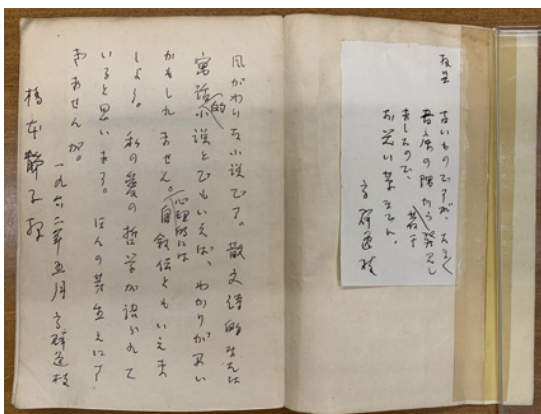 古いものですが、
書庫の隅から発見し
ましたので、
お笑い草まで。
高群逸枝
風がわりな小説です。散文詩的または
寓話的小説とでもいえば、わかりが早い
かもしれません。心理的には自叙伝ともいえま
しょう。私の愛の哲学が語られて
いると思います。ほんの芽生えにす
ぎませんが。
一九六二年五月 高群逸枝
橋本静子様